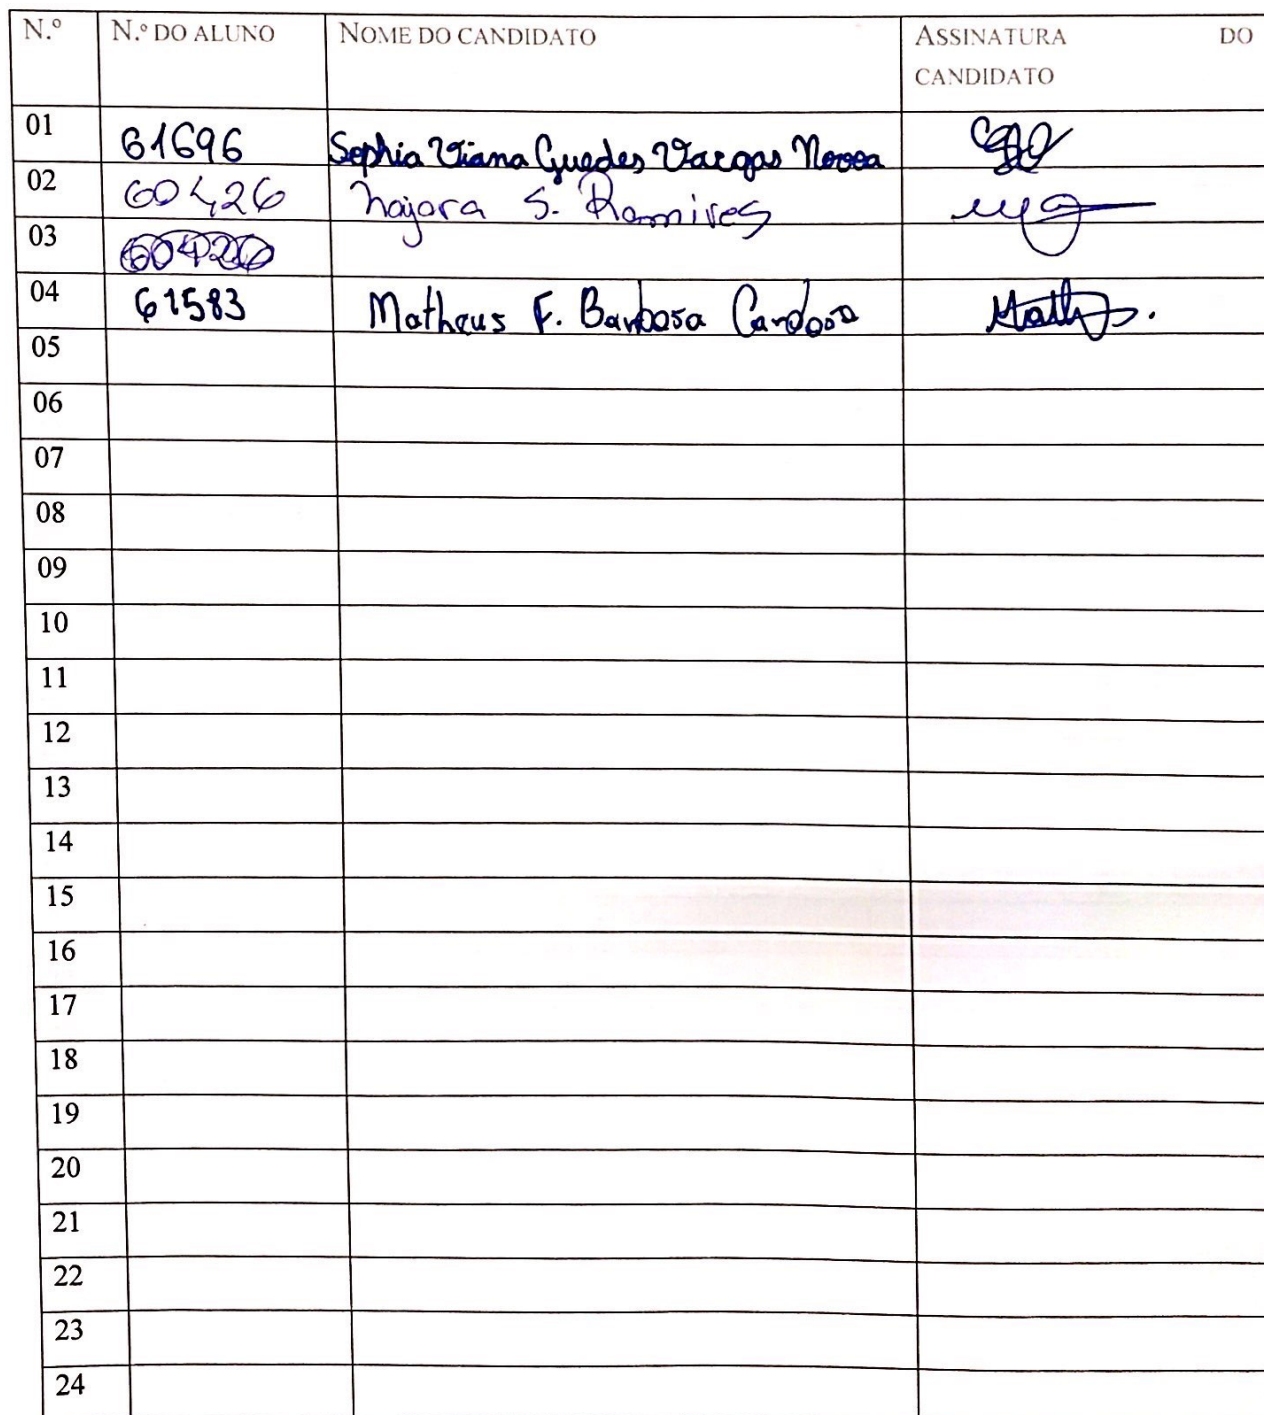 N.º N.º DO ALUNO NOME DO CANDIDATO ASSINATURA DO
CANDIDATO
01 61696 Sophia Viana Guedes Vargas
02 60426 Najara S. Ramires
03 60426
04 61583 Matheus F. Barbosa Cardoso
05
06
07
08
09
10
11
12
13
14
15
16
17
18
19
20
21
22
23
24